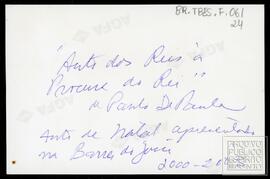 BR.TBES.F.061
24
"Auto dos Reis à
Procura do Rei"
de Paulo DePaula
Auto de Natal apresentado
na Barra do Jucu
2000-20
AGFA
ARQUIVO
PÚBLICO